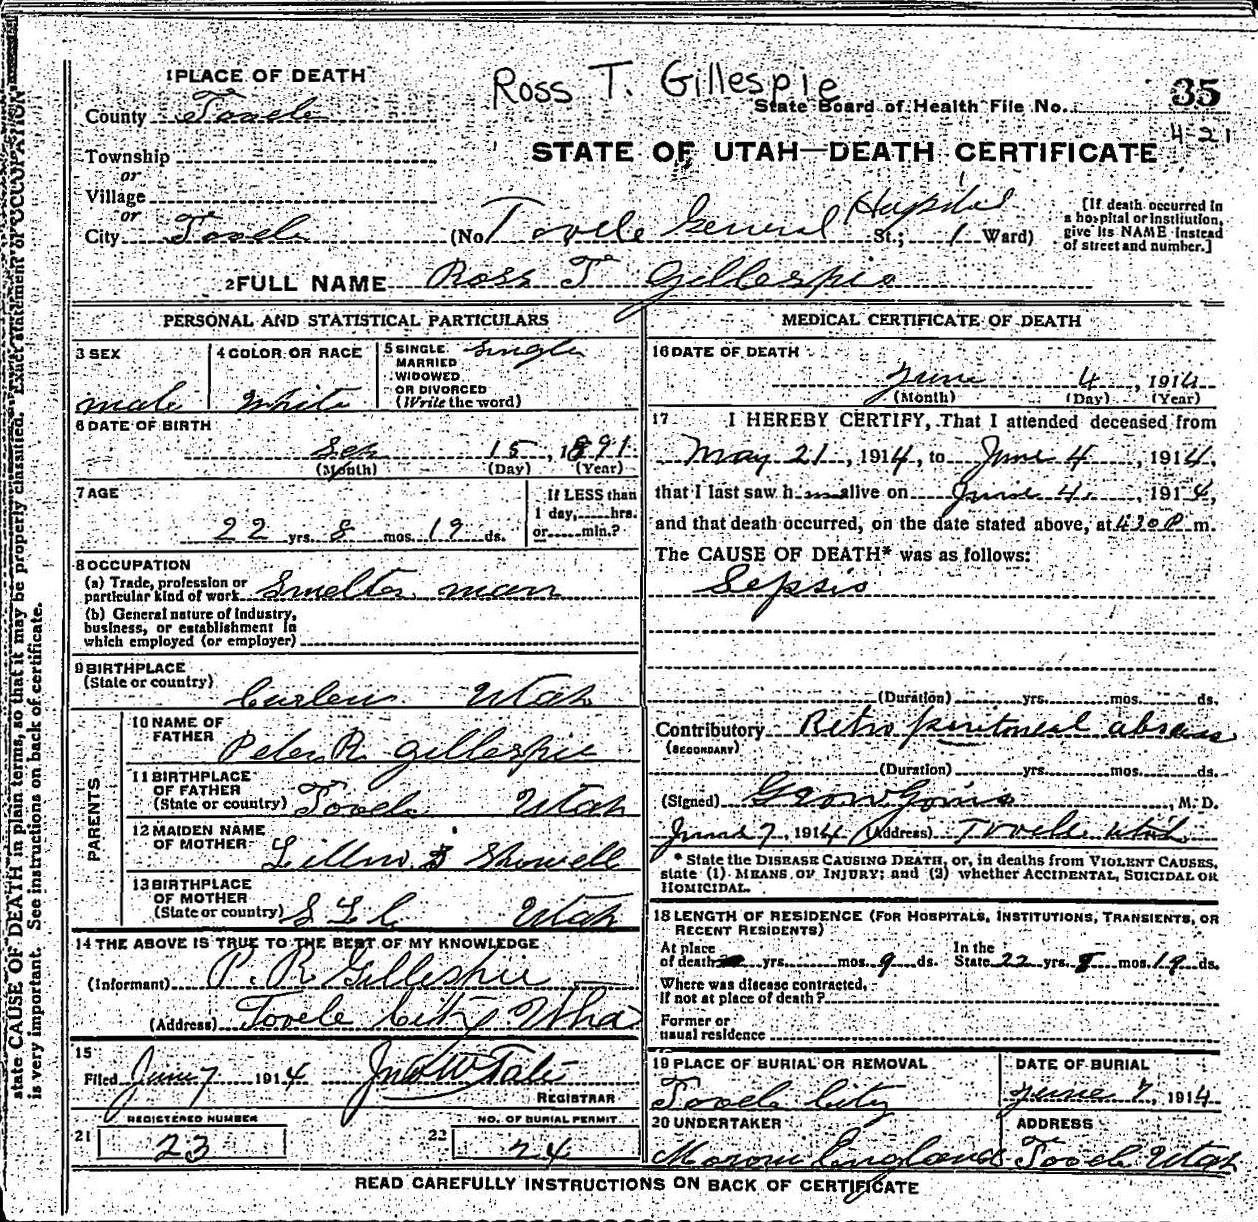 Ross T. Gillespie
1 PLACE OF DEATH
State Board of Health File No. 35
County Tooele
4-21
Township
STATE OF UTAH—DEATH CERTIFICATE
or
Village
or
City Tooele (No Tooele General Hospital St.; 1 Ward)
[If death occurred in
a hospital or institution,
give its NAME instead
of street and number.]
2 FULL NAME Ross T Gillespie
PERSONAL AND STATISTICAL PARTICULARS
3 SEX
male
4 COLOR OR RACE
White
5 SINGLE
MARRIED
WIDOWED
OR DIVORCED
(Write the word)
Single
6 DATE OF BIRTH
Sep 15, 1891
(Month) (Day) (Year)
7 AGE
22 yrs. 8 mos. 19 ds.
If LESS than
1 day, hrs.
or min.?
8 OCCUPATION
(a) Trade, profession or
particular kind of work Smelter man
(b) General nature of industry,
business, or establishment in
which employed (or employer)
9 BIRTHPLACE
(State or country)
Utah
PARENTS
10 NAME OF
FATHER
Peter R Gillespie
11 BIRTHPLACE
OF FATHER
(State or country) Tooele Utah
12 MAIDEN NAME
OF MOTHER
Showell
13 BIRTHPLACE
OF MOTHER
(State or country) S L C Utah
14 THE ABOVE IS TRUE TO THE BEST OF MY KNOWLEDGE
(Informant) P. R Gillespie
(Address) Tooele City Utha
15
Filed June 7 1914
REGISTRAR
REGISTERED NUMBER
21 23
NO. OF BURIAL PERMIT
22 24
MEDICAL CERTIFICATE OF DEATH
16 DATE OF DEATH
June 4, 1914
(Month) (Day) (Year)
17 I HEREBY CERTIFY, That I attended deceased from
May 21, 1914, to June 4, 1914,
that I last saw h im alive on June 4, 1914,
and that death occurred, on the date stated above, at 430 P m.
The CAUSE OF DEATH* was as follows:
Sepsis
(Duration) yrs. mos. ds.
Contributory Retro peritoneal abscess
(SECONDARY)
(Duration) yrs. mos. ds.
(Signed) , M. D.
June 7, 1914 (Address) Tooele Utah
* State the DISEASE CAUSING DEATH, or, in deaths from VIOLENT CAUSES,
state (1) MEANS OF INJURY; and (2) whether ACCIDENTAL, SUICIDAL OR
HOMICIDAL.
18 LENGTH OF RESIDENCE (FOR HOSPITALS, INSTITUTIONS, TRANSIENTS, OR
RECENT RESIDENTS)
At place
of death yrs. mos. 9 ds.
In the
State 22 yrs. 8 mos. 19 ds.
Where was disease contracted,
if not at place of death?
Former or
usual residence
19 PLACE OF BURIAL OR REMOVAL
Tooele City
DATE OF BURIAL
June 7, 1914
20 UNDERTAKER
Moroni England
ADDRESS
Tooele Utah
READ CAREFULLY INSTRUCTIONS ON BACK OF CERTIFICATE
state CAUSE OF DEATH in plain terms, so that it may be properly classified. Exact statement of OCCUPATION
is very important. See instructions on back of certificate.